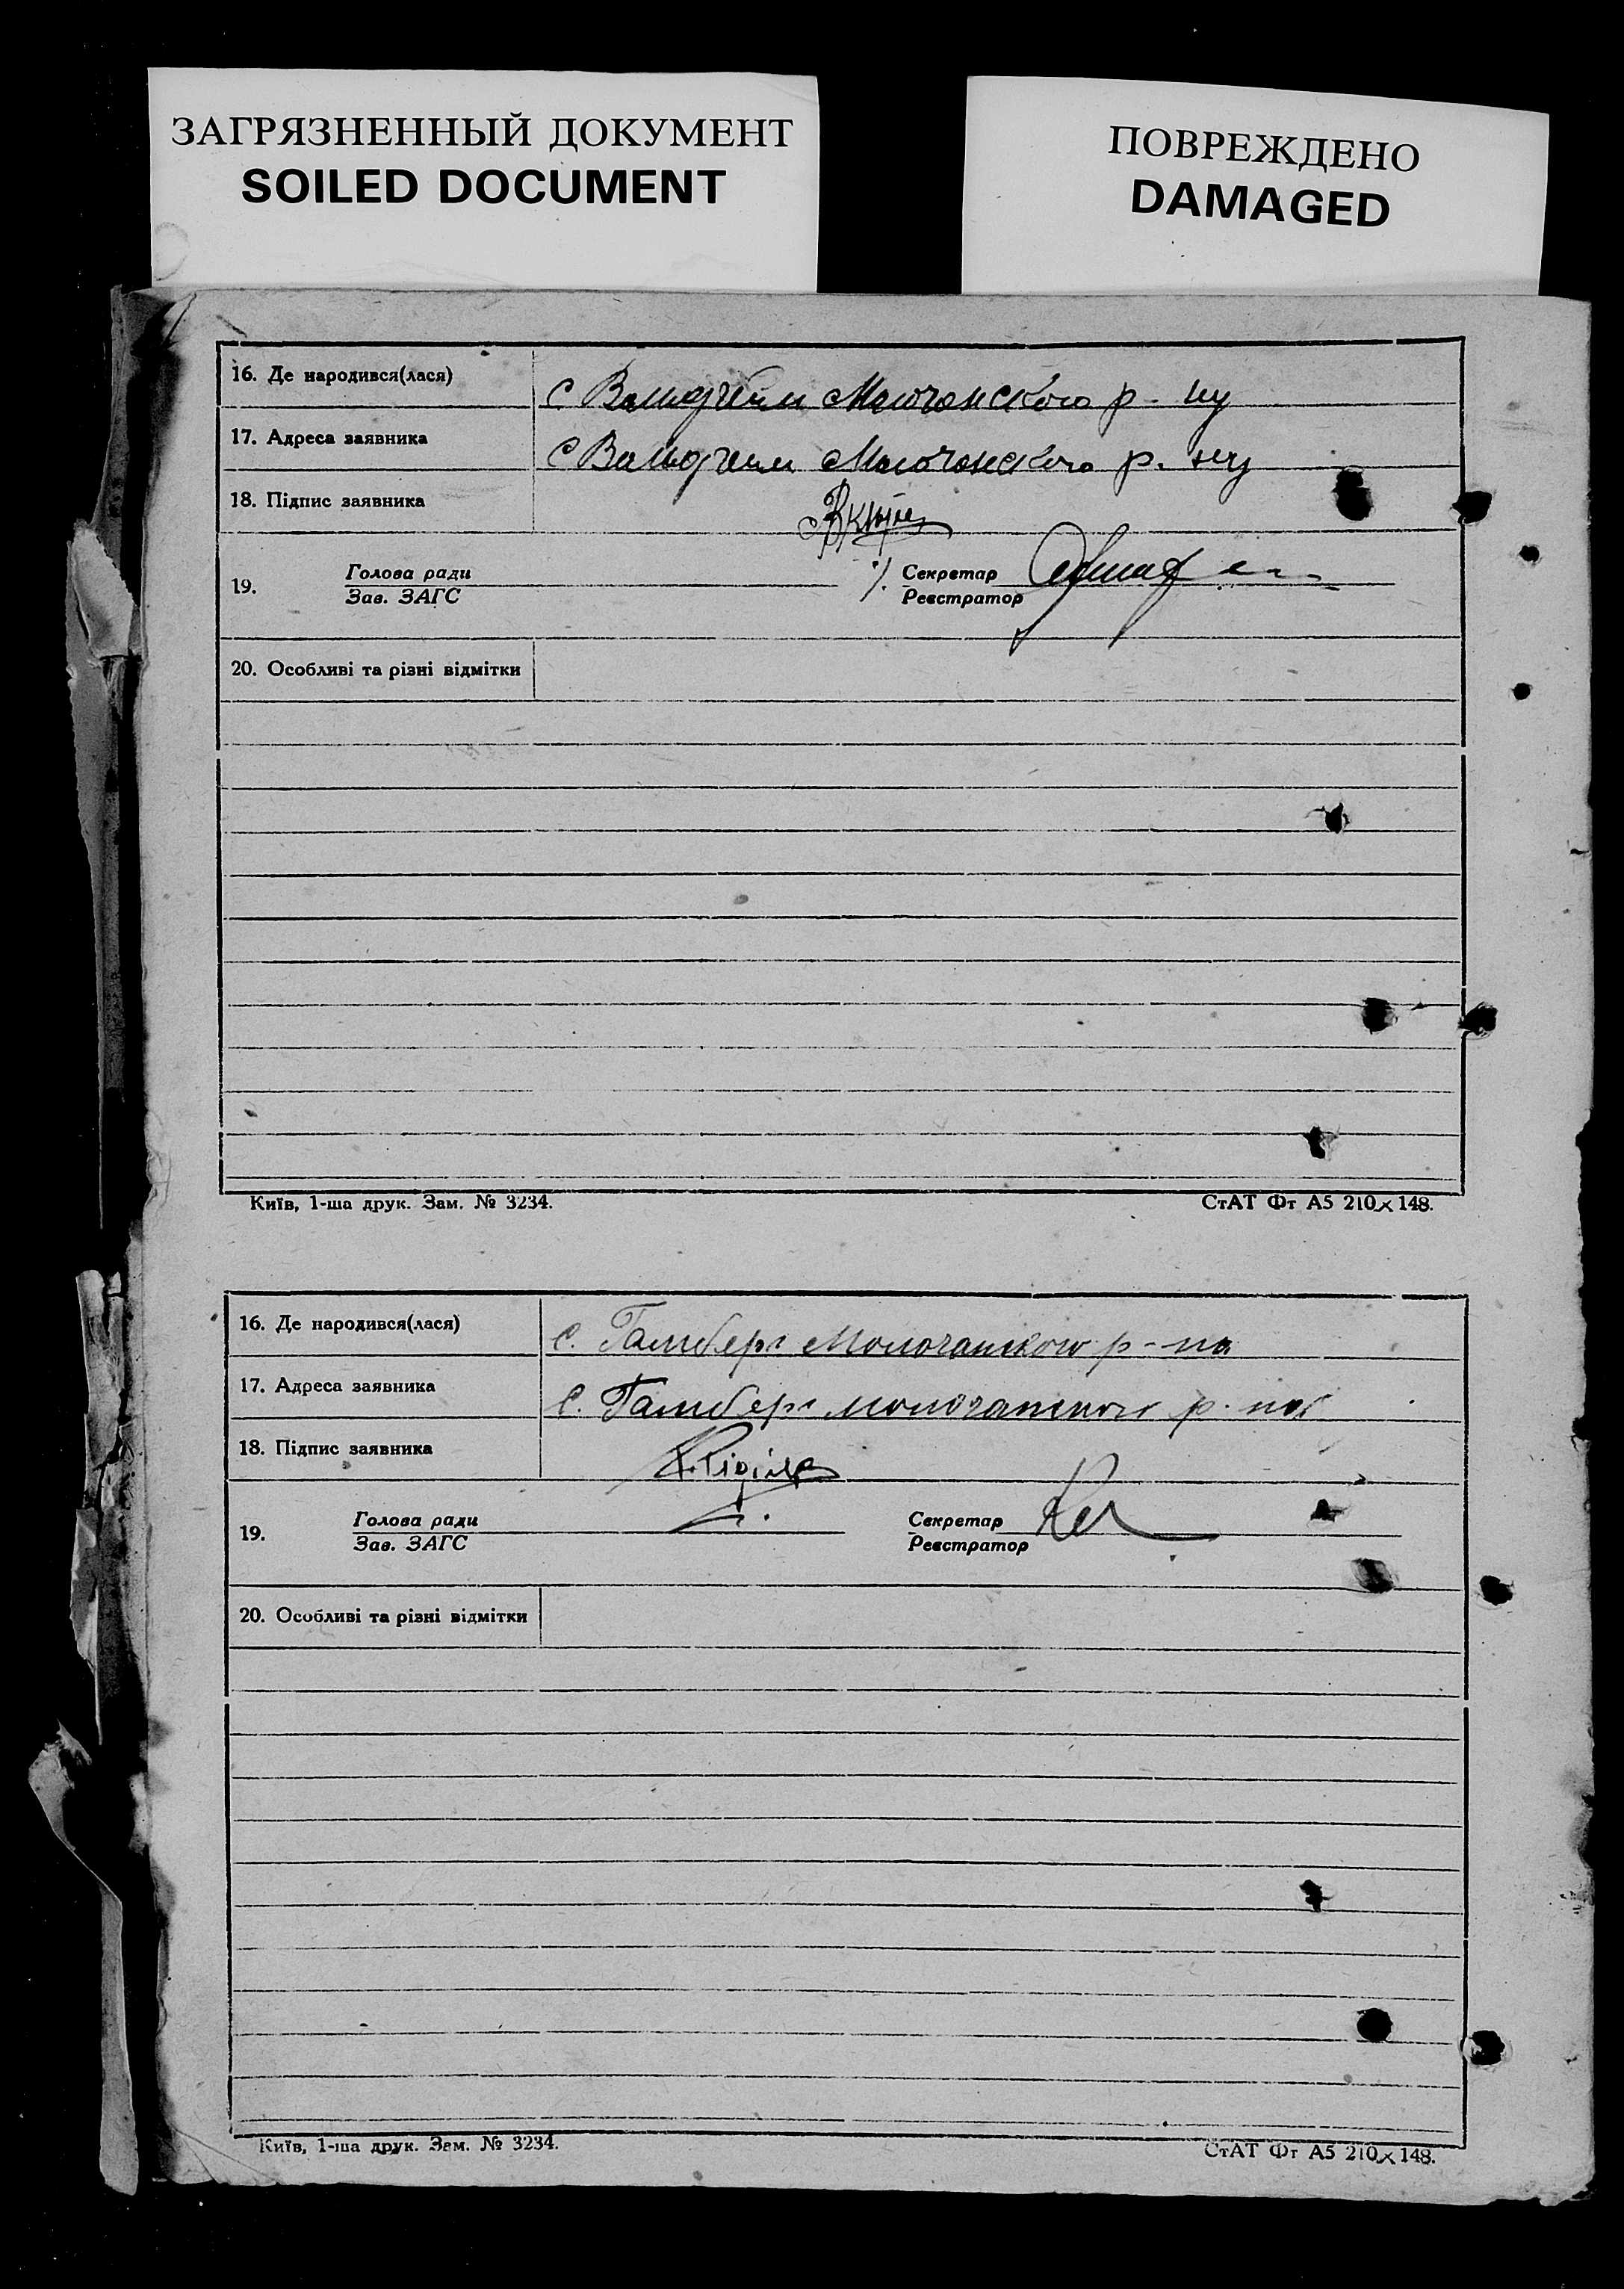 ЗАГРЯЗНЕННЫЙ ДОКУМЕНТ
SOILED DOCUMENT
ПОВРЕЖДЕНО
DAMAGED
16. Де народився(лася) с. Вальдгейм Молочанского р-ну
17. Адреса заявника с Вальдгейм Молочанского р. ну
18. Підпис заявника
19. Голова ради Секретар
Зав. ЗАГС Реєстратор
20. Особливі та різні відмітки
Київ, 1-ша друк. Зам. № 3234. СтАТ Фт А5 210×148.
16. Де народився(лася) с. Гамберг Молочанского р-на
17. Адреса заявника с. Гамберг молочанского р. на
18. Підпис заявника
19. Голова ради Секретар
Зав. ЗАГС Реєстратор
20. Особливі та різні відмітки
Київ, 1-ша друк. Зам. № 3234. СтАТ Фт А5 210×148.